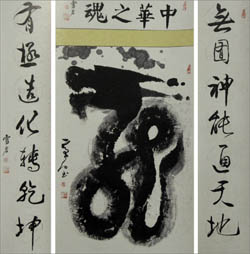 中華之魂
無圖神能通天地
龍
有極造化轉乾坤
雪君